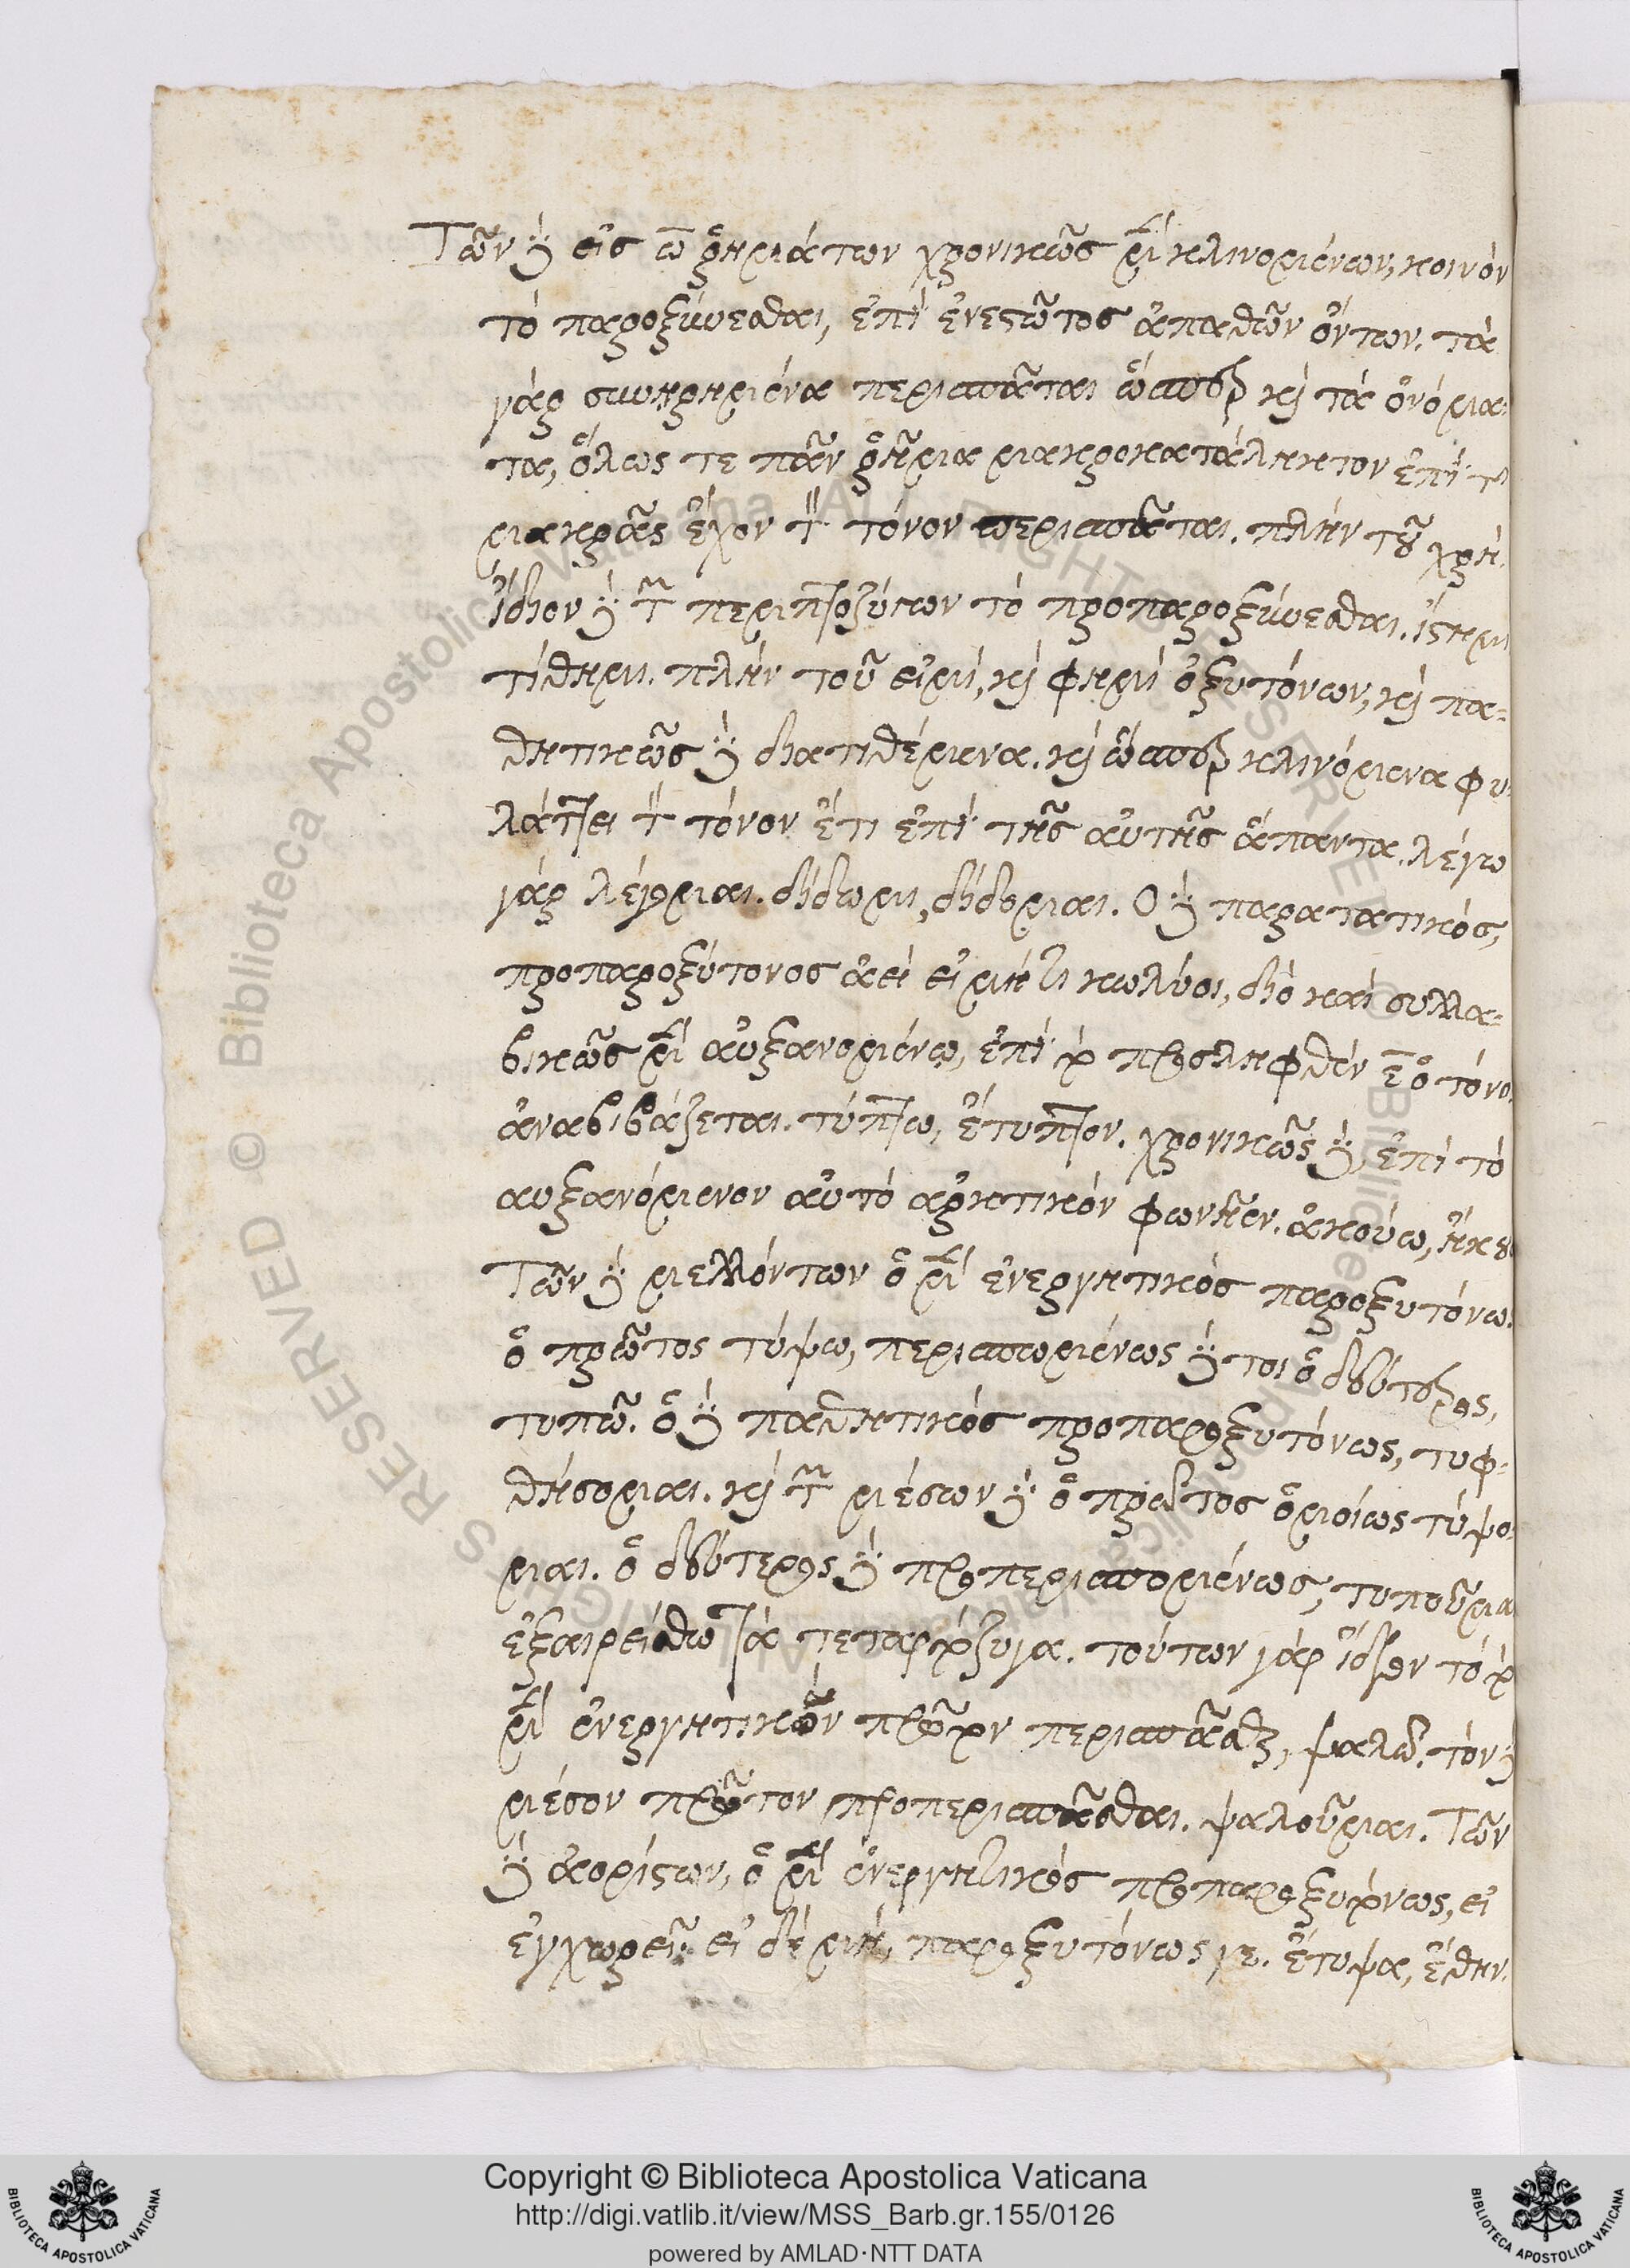 Τῶν δὲ εἰς ω ῥημάτων χρονικῶς μὲν κλινομένων, κοινὸν
τὸ παροξύνεσθαι, ἐπὶ ἐνεστῶτος ἀπαθῶν ὄντων. τὰ
γὰρ συνῃρημένα περισπᾶται ὥσπερ καὶ τὰ ὀνόμα-
τα, ὅλως τε πᾶν ῥῆμα μακροκατάληκτον ἐπὶ τ
μακρᾶς ἔχον τὸν τόνον περισπᾶται. πλὴν τοῦ χρή.
ἴδιον δὲ τῶν περιττοζύγων τὸ προπαροξύνεσθαι. ἵστημι
τίθημι. πλὴν τοῦ εἰμὶ, καὶ φημὶ ὀξυτόνων, καὶ πα-
θητικῶς δὲ διατιθέμενα. καὶ ὥσπερ κλινόμενα φυ
λάττει τὸν τόνον ἔτι ἐπὶ τῆς αὐτῆς ἅπαντα. λέγω
γὰρ λέγομαι. δίδωμι, δίδομαι. Ὁ δὲ παρατατικὸς,
προπαροξύτονος ἀεὶ εἰ μή τι κωλύοι, διὸ καὶ συλλα-
βικῶς μὲν αὐξανομένῳ, ἐπὶ τὸ προσληφθὲν ε ὁ τόνο
ἀναβιβάζεται. τύπτω, ἔτυπτον. χρονικῶς δὲ, ἐπὶ τὸ
αυξανόμενον αὐτὸ αρκτικὸν φωνῆεν. ἀκούω, ἤκου
Τῶν δὲ μελλόντων ὁ μὲν ἐνεργητικὸς παροξυτόνω
ὁ πρῶτος τύψω, περισπωμένως δέ τοι ὁ δεύτερος,
τυπῶ. ὁ δὲ παθητικὸς προπαροξυτόνως, τυφ-
θήσομαι. καὶ τῶν μέσων δὲ ὁ πρῶτος ὁμοίως τύψο
μαι. ὁ δεύτερος δὲ προπερισπομένως, τυποῦμα
ἐξαιρείσθω τὰ τεταρτόζυγα. τούτων γὰρ ἴδιον τὸ τὸ
μὲν ἐνεργητικῶν πρῶτον περισπᾶσθαι, ψαλῶ. τὸν δὲ
μέσον πρῶτον προπερισπᾶσθαι. ψαλοῦμαι. Τῶν
δὲ ἀορίστων, ὁ μὲν ἐνεργητικὸς προπαροξυτόνως, εἰ
ἐγχωρεῖ. εἰ δὲ μὴ, παροξυτόνως γε. ἔτυψα, ἔθην.
Copyright © Biblioteca Apostolica Vaticana
http://digi.vatlib.it/view/MSS_Barb.gr.155/0126
powered by AMLAD·NTT DATA